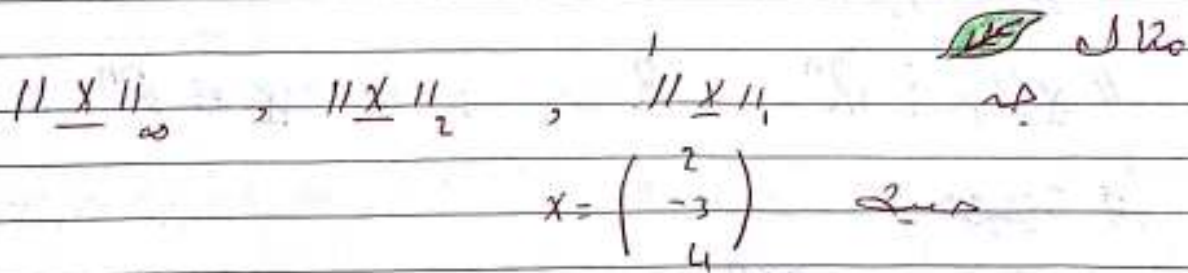 مثال
جد ‖X‖₁ , ‖X‖₂ , ‖X‖∞
حيث X = ( 2
-3
4 )